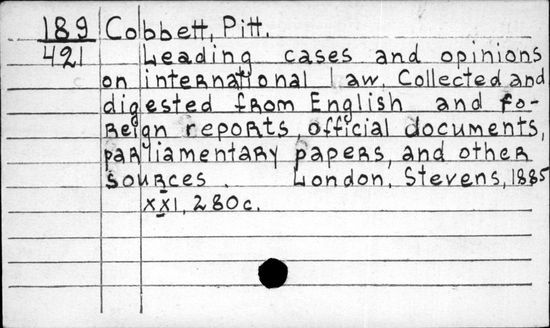 189 Cobbett, Pitt.
421 Leading cases and opinions
on international law. Collected and
digested from English and fo-
reign reports, official documents,
parliamentary papers, and other
sources. London, Stevens, 1885
xxi, 280c.